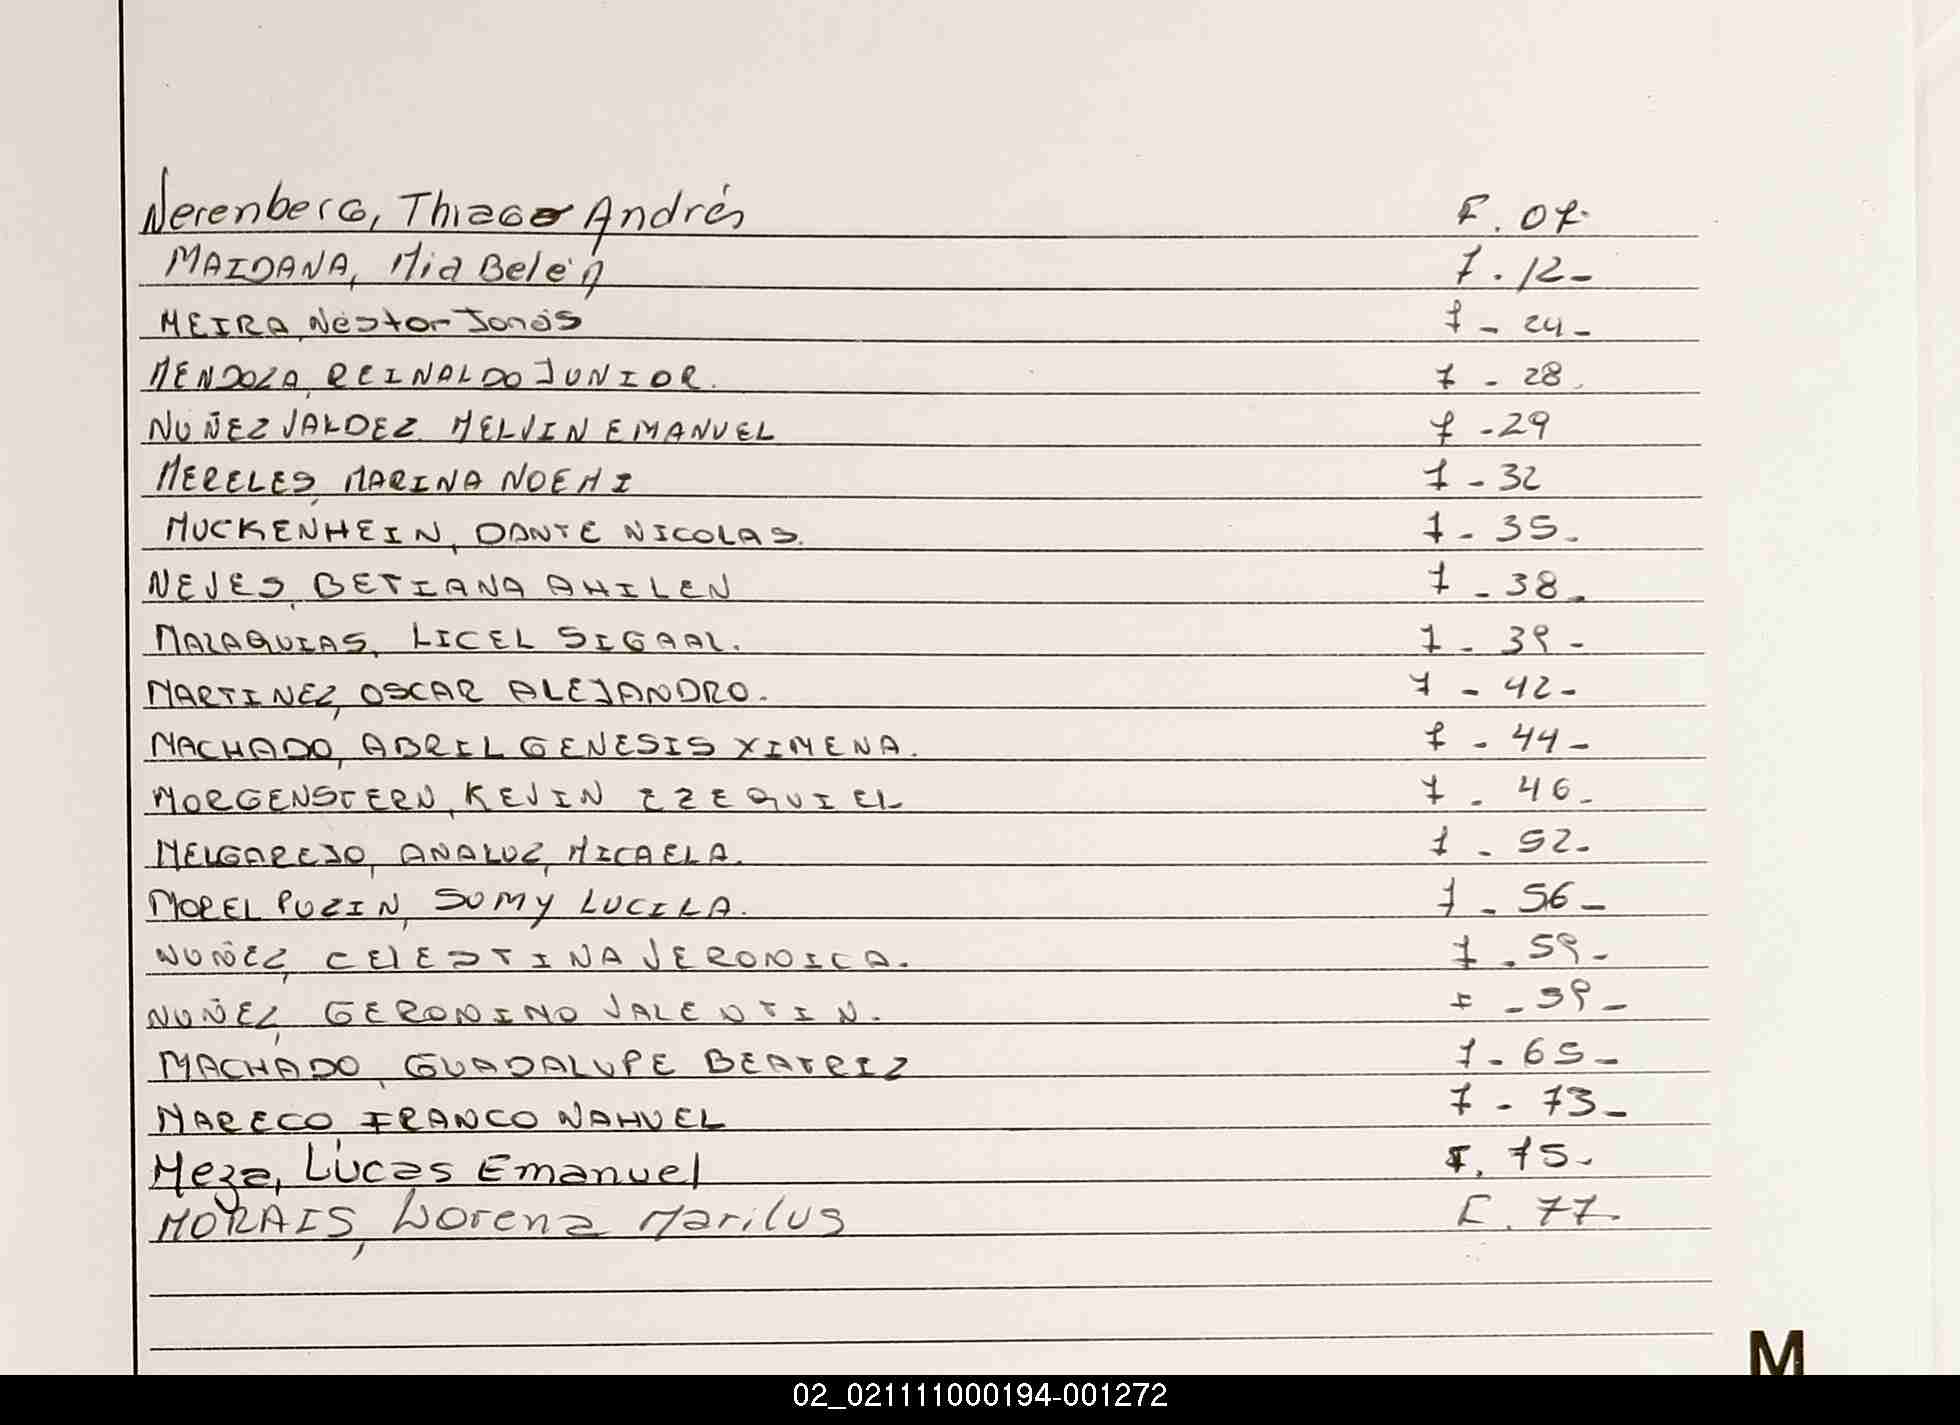 Nerenberg, Thiago Andrés F. 07-
MAIDANA, Mia Belén F. 12-
MEIRA, Néstor Jonás F - 24 -
MENDOZA, REINALDO JUNIOR. F - 28.
NUÑEZ VALDEZ MELVIN EMANUEL F - 29
MERELES, MARINA NOEMI F - 32
MUCKENHEIN, DANTE NICOLAS. F - 35.
NEVES, BETIANA AHILEN F - 38-
MALAQUIAS, LICEL SIGAAL. F - 39 -
MARTINEZ, OSCAR ALEJANDRO. F - 42-
MACHADO, ABRIL GENESIS XIMENA. F - 44-
MORGENSTERN, KEVIN EZEQUIEL F - 46-
MELGAREJO, ANALUZ, MICAELA. F - 52-
MOREL PUZIN, SUMY LUCILA. F - 56-
NUÑEZ, CELESTINA VERONICA. F - 59-
NUÑEZ, GERONIMO VALENTIN. F - 59-
MACHADO, GUADALUPE BEATRIZ F - 65-
MARECO FRANCO NAHUEL F - 73-
Meza, Lucas Emanuel F. 75-
MORAIS, Lorena Marilus F. 77.
M
02_021111000194-001272